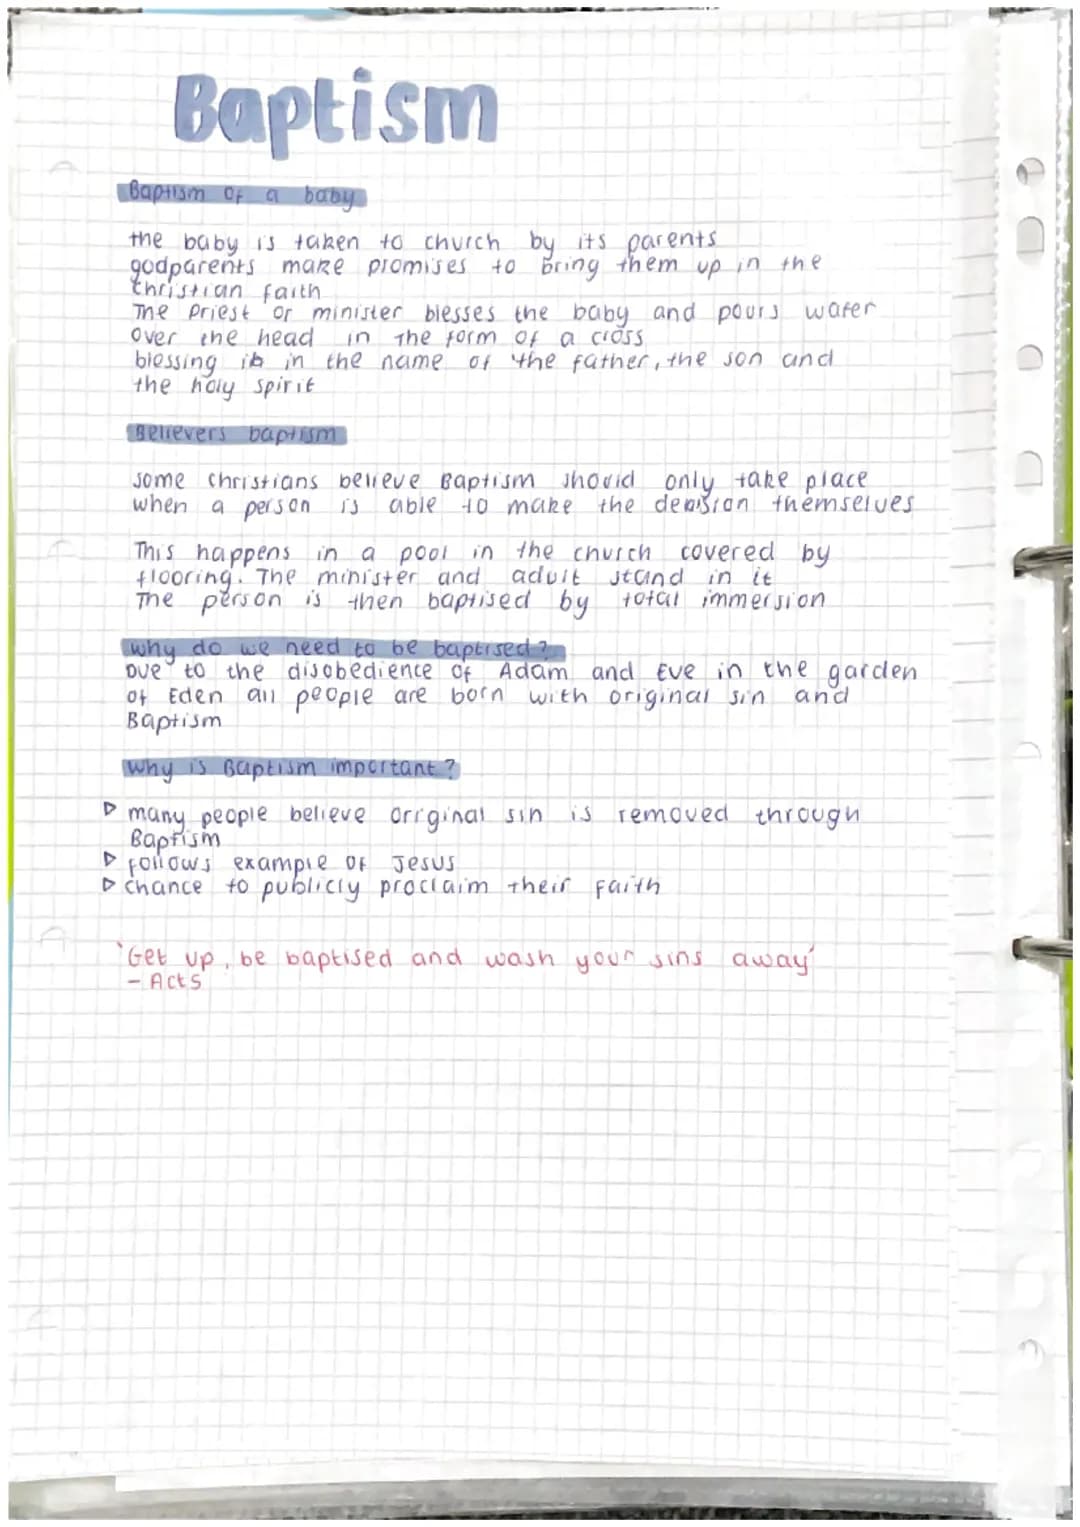 Baptism
Baptism of a baby
the baby is taken to church by its parents
godparents make promises to bring them up in the
Christian faith
The priest or minister blesses the baby and pours water
over the head in the form of a cross
blessing is in the name of the father, the son and
the holy spirit
Believers baptism
some christians believe Baptism should only take place
when a person is able to make the decision themselves
This happens in a pool in the church covered by
flooring. The minister and adult stand in it
The person is then baptised by total immersion
why do we need to be baptised?
Due to the disobedience of Adam and Eve in the garden
of Eden all people are born with original sin and
Baptism
Why is Baptism important?
▷ many people believe original sin is removed through
Baptism
▷ follows example of Jesus
▷ chance to publicly proclaim their faith
'Get up, be baptised and wash your sins away'
- Acts